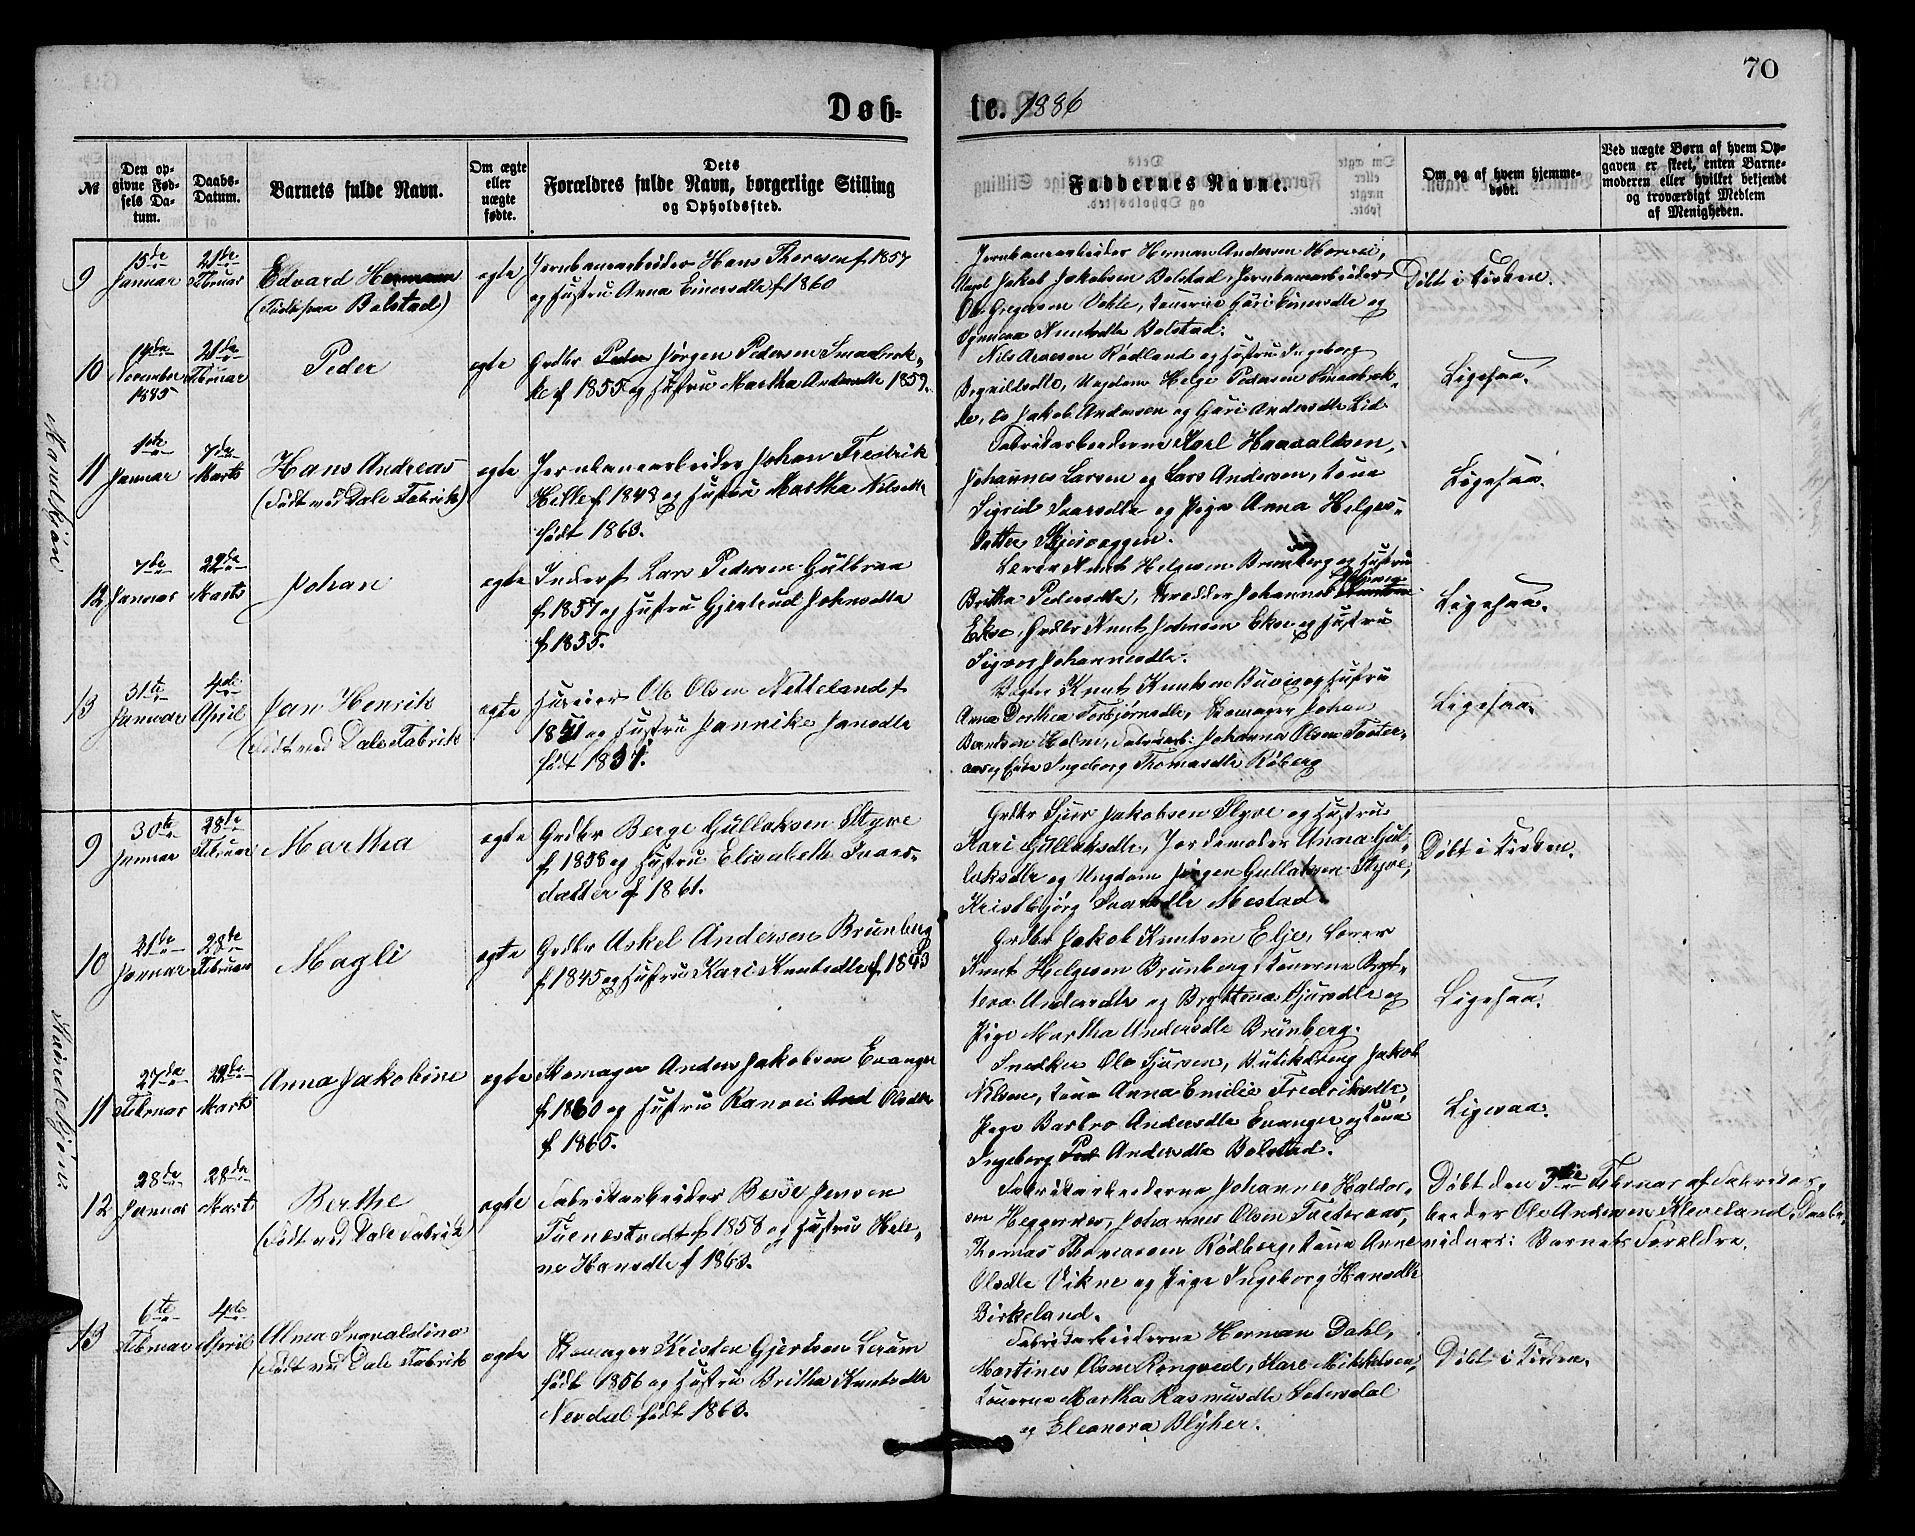 70
Døb=
te. 1886
№
Den op-
givne Fød-
sels Da-
tum.
Daabs-
Datum.
Barnets fulde Navn.
Om ægte
eller
uægte
fødte.
Dets
Forældres fulde Navn, borgerlige Stilling
og Opholdssted.
Faddernes Navne.
Om og af hvem hjemme-
døbt.
Ved uægte Børn af hvem Op-
gaven er skeet, enten Barne-
moderen eller hvilket bekjendt
og troværdigt Medlem
af Menigheden.
Mandkjøn
9
15de
Januar
21de
Februar
Edvard Hermann
(Født paa Bolstad)
egte
Jernbanearbeider Hans Thoresen f 1857
og Hustru Anna Einersdtr f 1860
Jernbanearbeider Herman Andersen
Jakob Jakobsen Bolstad, Jernbanearbeider
Knutsdtr Bolstad.
Døbt i Kirken.
10
14de
November
1885
21de
Februar
Peder
egte
Grdbr Peder Jørgen Pedersen Smaabræk-
ke f 1855 og Hustru Martha Andersdtr 1859.
Nils Arnesen Rødland og Hustru Ingeborg
Ungdom Helge Pedersen Smaabræk-
ke, og Jakob Andersen og Gûri Andersdtr Lid.
Ligesaa.
11
1ste
Januar
7de
Marts
Hans Andreas
(Født ved Dale Fabrik)
egte
Jernbanearbeider Johan Fredrik
Helle f 1848 og Hustru Martha Nilsdtr
født 1863.
Fabrikarbeiderne Karl Haavaldsen,
Johannes Larsen og Lars Andersen, Kone
Sigrid Ivarsdtr og Pige Anna Helges-
datter
Ligesaa.
12
7de
Januar
22de
Marts
Johan
egte
Inderst Lars Pedersen Gûlbraa
f. 1857 og Hustru Gjertrud Johnsdtr
f. 1855.
Lærer Knut Helgesen Brunborg og Hustru
Britha Pedersdtr, Johannes
Ekse, Grdbr Knut Johnsen Ekse og Hustru
Sigvor Johannesdtr.
Ligesaa.
13
31te
Januar
4de
April
Jan Henrik
(født ved Dale Fabrik
egte
Husier Ole Olsen Netteland f
1851 og Hustru Jannike Jansdtr
født 1851.
Knut Knutsen Buvig og Hustru
Anna Dorthea Torbjørnsdtr, Skomager Johan
Berntsen Holme, Fabrikarb: Johannes Olsen
Ingeborg Thomasdtr Røberg
Ligesaa.
Kvindekjøn
9
30te
Januar
28de
Februar
Martha
egte
Grdbr Berge Gûllaksen Styve
f 1858 og Hustru Elisabeth Ivars-
datter f 1861.
Grdbr Sjur Jakobsen Styve og Hustru
Kari Gûllaksdtr, Jordemoder Unna Gûl-
laksdtr og Ungdom Jørgen Gullaksen Styve,
Kristbjørg Ivarsdtr Mestad.
Døbt i Kirken.
10
21de
Januar
28de
Februar
Magli
egte
Grdbr Askel Andersen Brûnborg
f 1845 og Hustru Kari Knutsdtr f. 1843
Grdbr Jakob Knutsen Elje, Lærer
Knut Helgesen Brûnborg, Konerne Bryt-
teva Andersdtr og Brytteva Sjursdtr og
Pige Martha Andersdtr Brûnborg.
Ligesaa.
11
27de
Februar
22de
Marts
Anna Jakobine
egte
Skomager Anders Jakobsen Evanger
f 1860 og Hustru Ranvei And Olsdtr
f 1865.
Snedker Ole Sjursen, Butikdreng Jakob
Nilsen, Kone Anna Emilie Fredriksdtr,
Pige Barbro Andersdtr Evanger og Kone
Ingeborg Ped Andersdtr Bolstad.
Ligesaa.
12
28de
Januar
28de
Marts
Berthe
(Født ved Dale Fabrik)
egte
Fabrikarbeider Jensen
f 1858 og Hustru Hele-
ne Hansdtr f 1863.
Fabrikarbeiderne Johannes Haldor-
sen Heggernes, Johannes Olsen
Thomas Thomassen Rødberg, Kone Anne
Olsdtr Vikne og Pige Ingeborg Hansdtr
Birkeland.
Døbt den 3die Februar af Fabrikar-
beider Ole Andersen Kleveland. Daabs-
vidner: Barnets Forældre.
13
6te
Februar
4de
April
Alma Ingvaldine
(født ved Dale Fabrik
egte
Skomager Kristen Gjertsen
født 1856 og Hustru Britha Knutsdtr
Nesdal født 1863.
Fabrikarbeiderne Herman Dahl,
Martines Olsen Rongved, Mikkelsen,
Konerne Martha Rasmusdtr
og Eleonora Blÿher.
Døbt i Kirken.